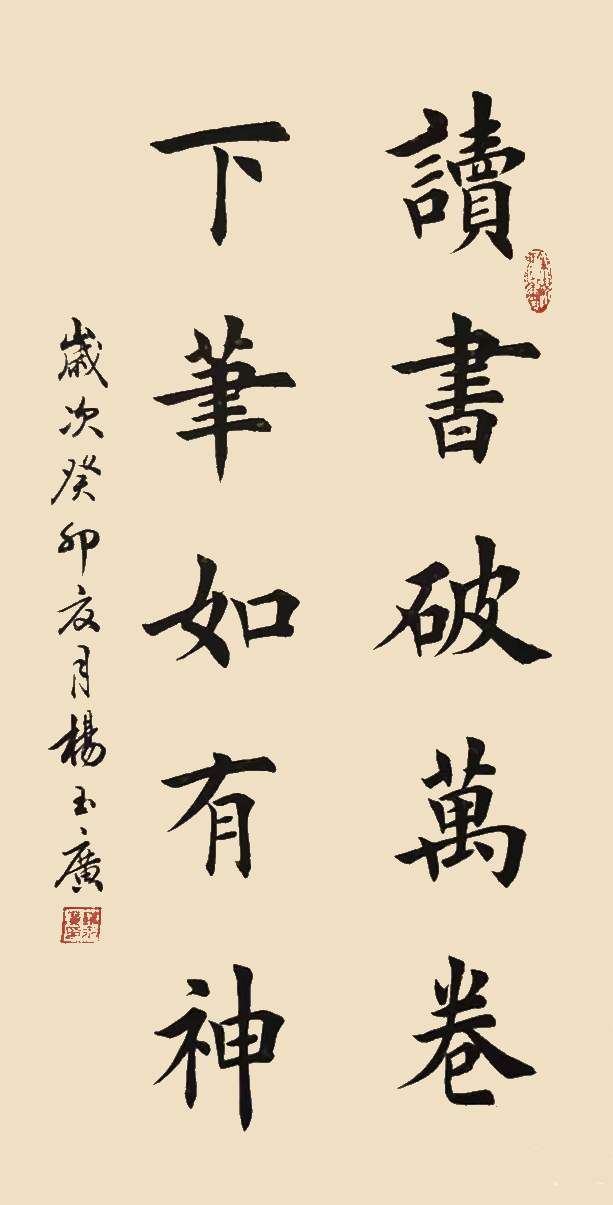 讀書破萬卷
下筆如有神
歲次癸卯亥月楊玉廣